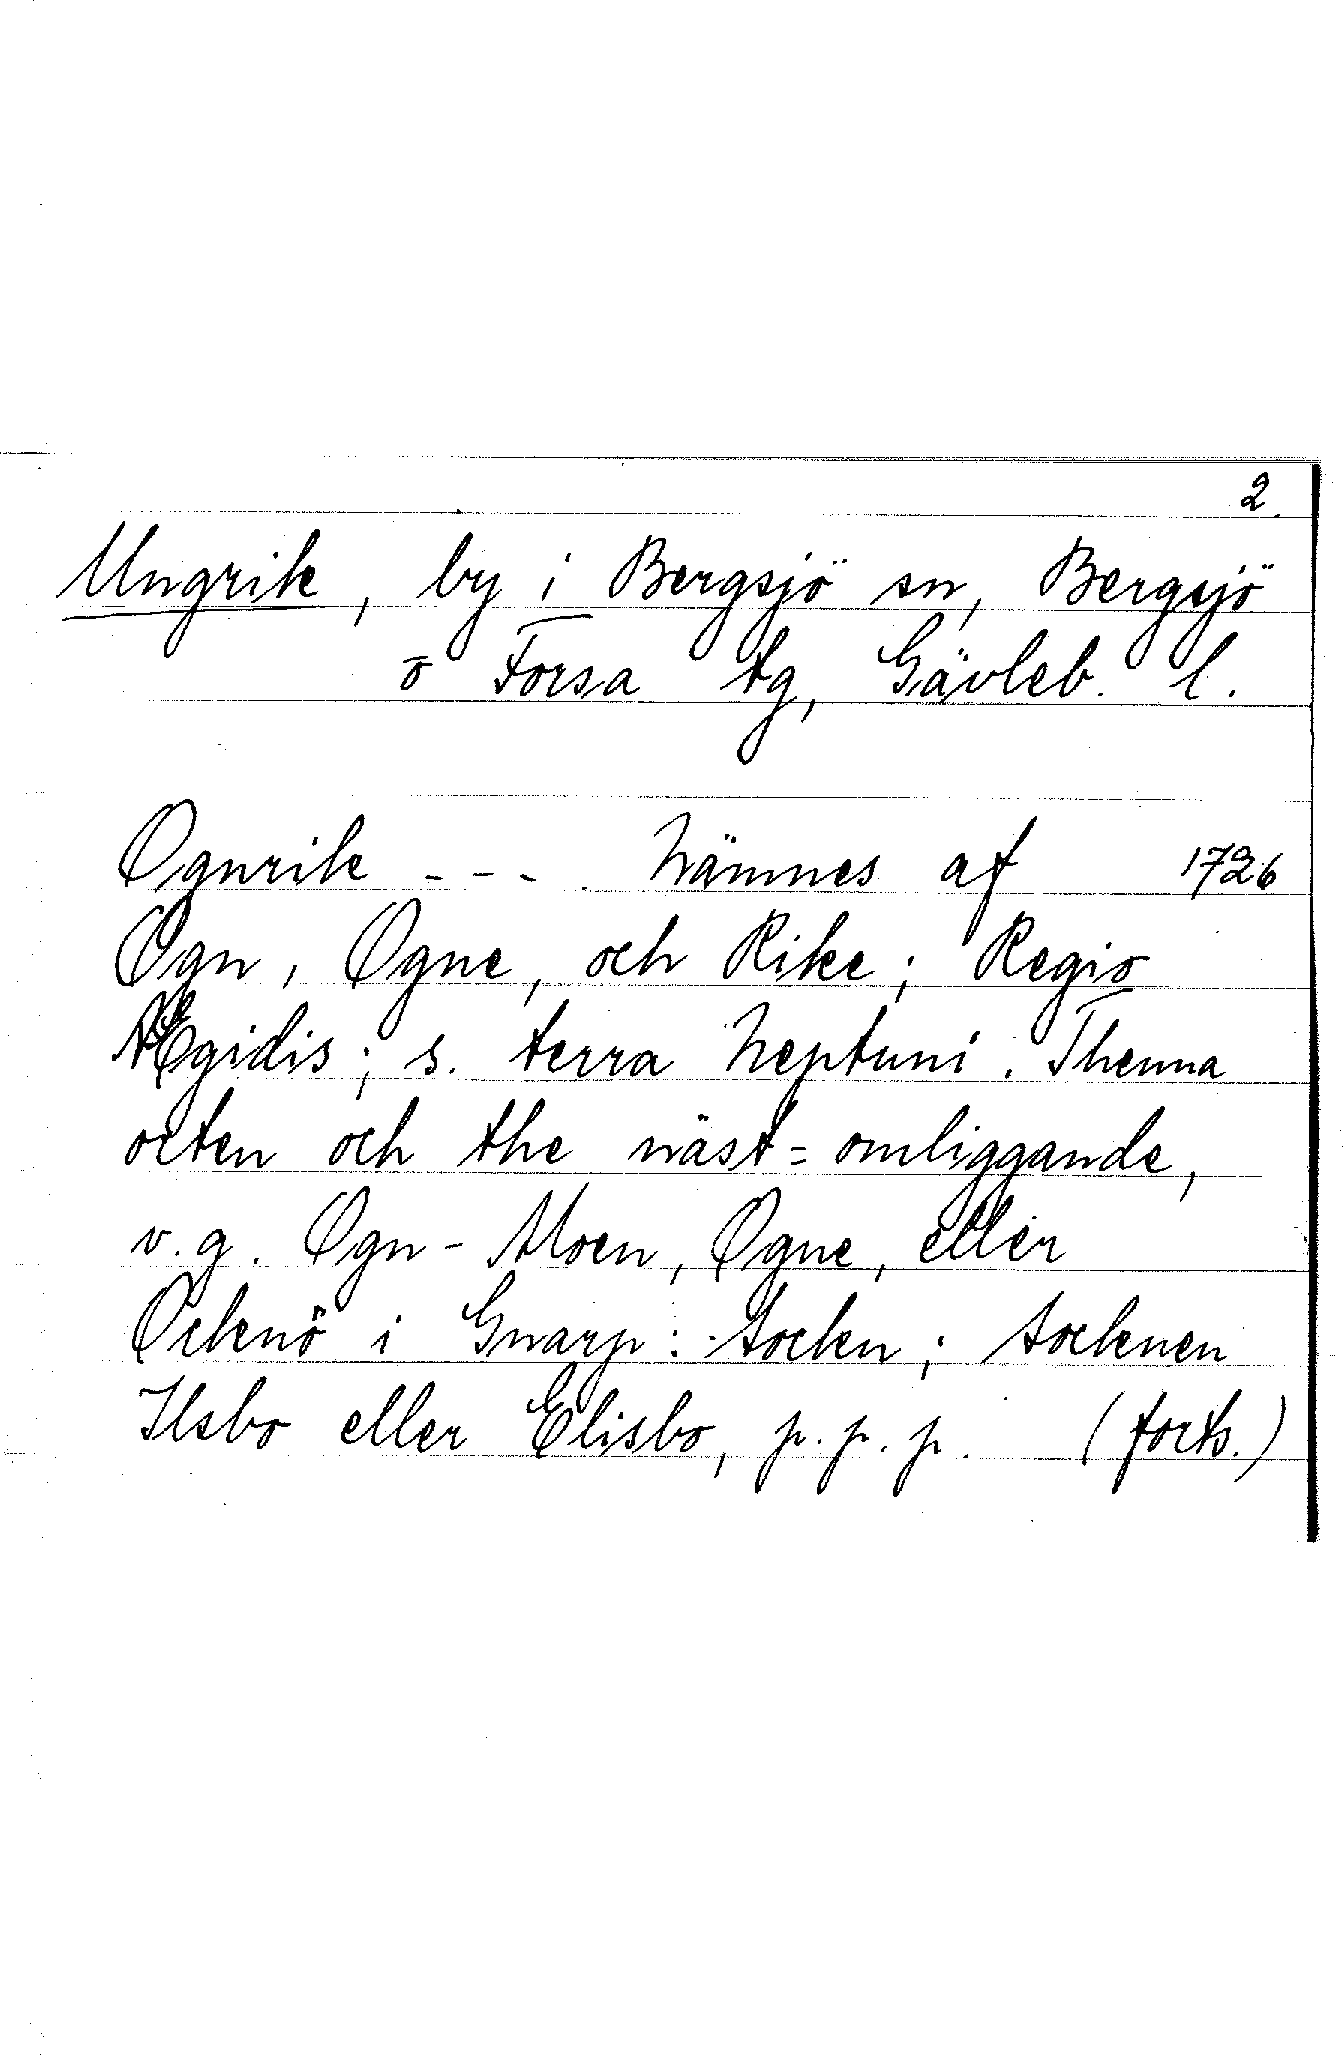 2.
Ungrik, by i Bergsjö sn, Bergsjö
o Forsa tg, Gävleb. l.
Ognrik - - - . Nämnes af 1726
Ogn, Ogne, och Rike; Regio
Ægidis; s. terra Neptuni. Thenna
orten och the näst=omliggande,
v.g. Ogn-Moen, Ogne, eller
Ockenö i Gnarp:socken; sockenen
Ilsbo eller Elisbo, p.p.p. (forts.)